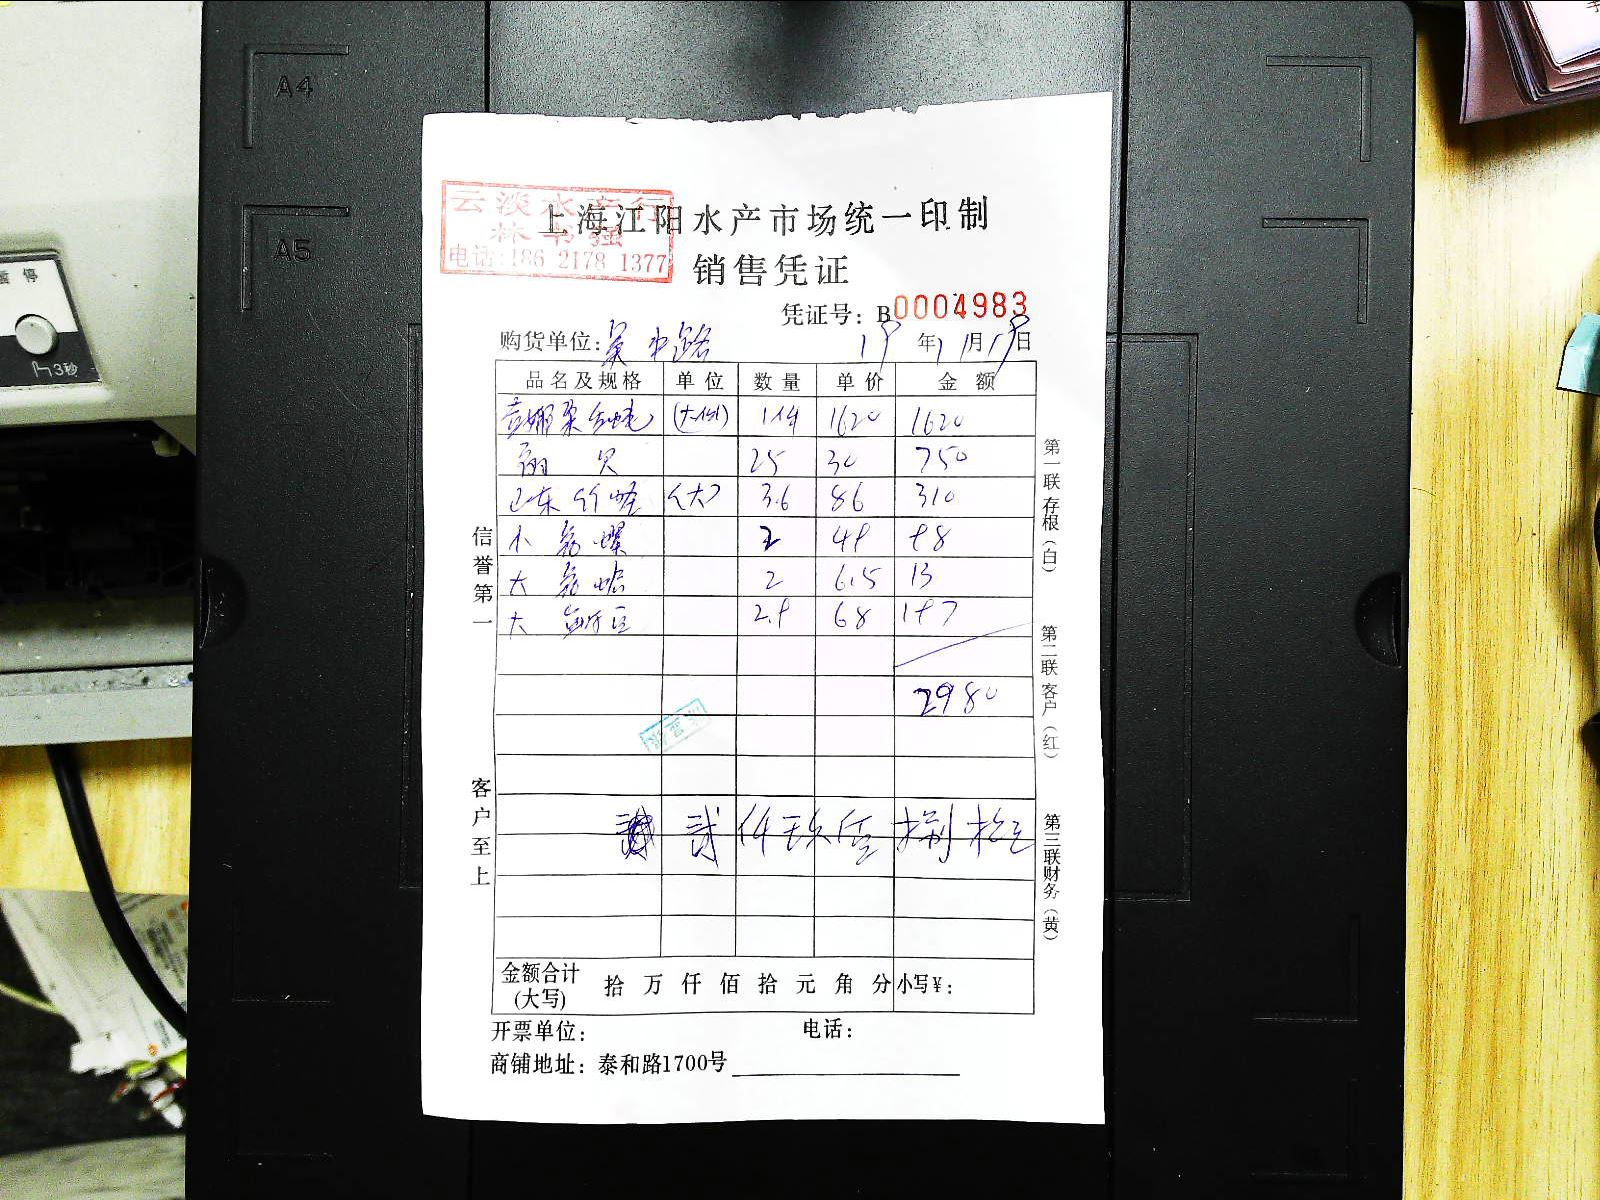 A4
A5
停
3秒
云淡水产行
林书强
电话:186 2178 1377
上海江阳水产市场统一印制
销售凭证
凭证号: B0004983
购货单位: 吴中路 19年 月 日
品名及规格 单位 数量 单价 金额
1件 1620 1620
贝 25 30 750
山东竹蛏 (大) 3.6 86 310
小 螺 2 49 98
大 2 6.5 13
大 2.9 68 197
2980
贰仟玖佰捌拾元
金额合计(大写) 拾 万 仟 佰 拾 元 角 分 小写¥:
开票单位: 电话:
商铺地址: 泰和路1700号
信誉第一
客户至上
第一联存根(白)
第二联客户(红)
第三联财务(黄)